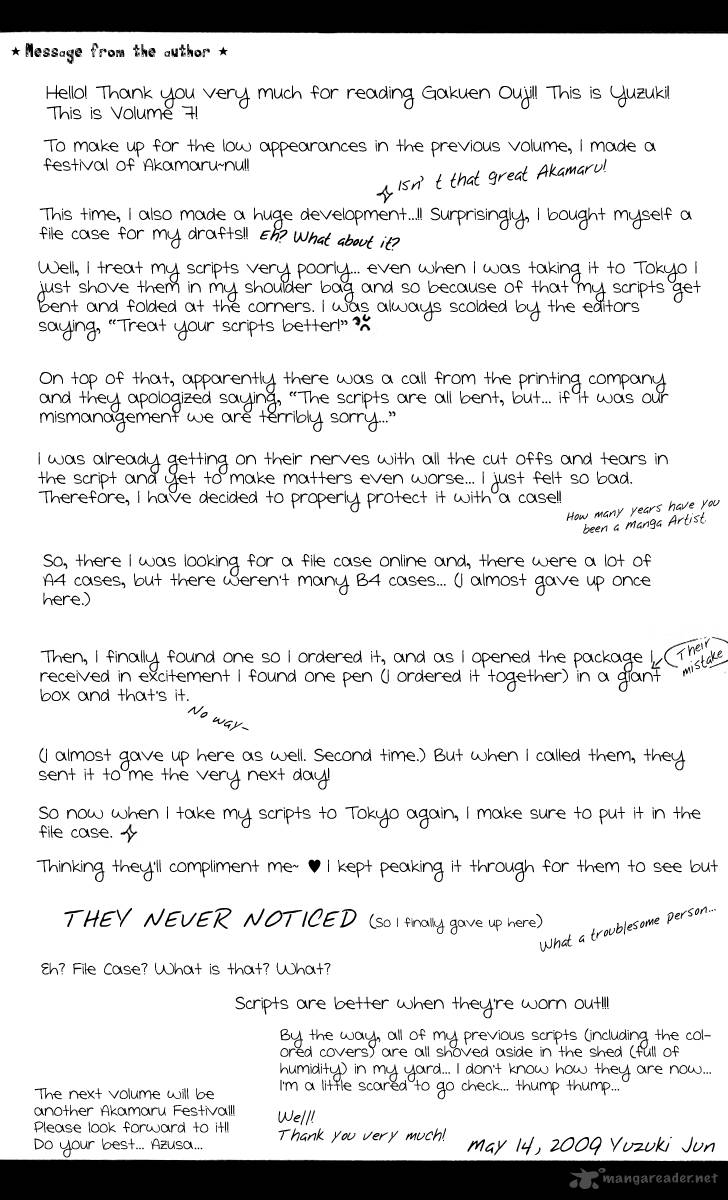 ★ Message from the author ★
Hello! Thank you very much for reading Gakuen Ouji!! This is Yuzuki!
This is Volume 7!
To make up for the low appearances in the previous volume, I made a
festival of Akamaru~nu!!
Isn't that great Akamaru!
This time, I also made a huge development...!! Surprisingly, I bought myself a
file case for my drafts!! Eh? What about it?
Well, I treat my scripts very poorly... even when I was taking it to Tokyo I
just shove them in my shoulder bag and so because of that my scripts get
bent and folded at the corners. I was always scolded by the editors
saying, "Treat your scripts better!"
On top of that, apparently there was a call from the printing company
and they apologized saying, "The scripts are all bent, but... if it was our
mismanagement we are terribly sorry..."
I was already getting on their nerves with all the cut offs and tears in
the script and yet to make matters even worse... I just felt so bad.
Therefore, I have decided to properly protect it with a case!!
How many years have you
been a manga Artist
So, there I was looking for a file case online and, there were a lot of
A4 cases, but there weren't many B4 cases... (I almost gave up once
here.)
Then, I finally found one so I ordered it, and as I opened the package I
received in excitement I found one pen (I ordered it together) in a giant
box and that's it.
Their
mistake
No way~
(I almost gave up here as well. Second time.) But when I called them, they
sent it to me the very next day!
So now when I take my scripts to Tokyo again, I make sure to put it in the
file case.
Thinking they'll compliment me~ ♥ I kept peaking it through for them to see but
THEY NEVER NOTICED (So I finally gave up here)
What a troublesome person...
Eh? File Case? What is that? What?
Scripts are better when they're worn out!!!
By the way, all of my previous scripts (including the col-
ored covers) are all shoved aside in the shed (full of
humidity) in my yard... I don't know how they are now...
I'm a little scared to go check... thump thump...
The next volume will be
another Akamaru Festival!!!
Please look forward to it!!
Do your best... Azusa...
Well!
Thank you very much!
May 14, 2009 Yuzuki Jun
mangareader.net